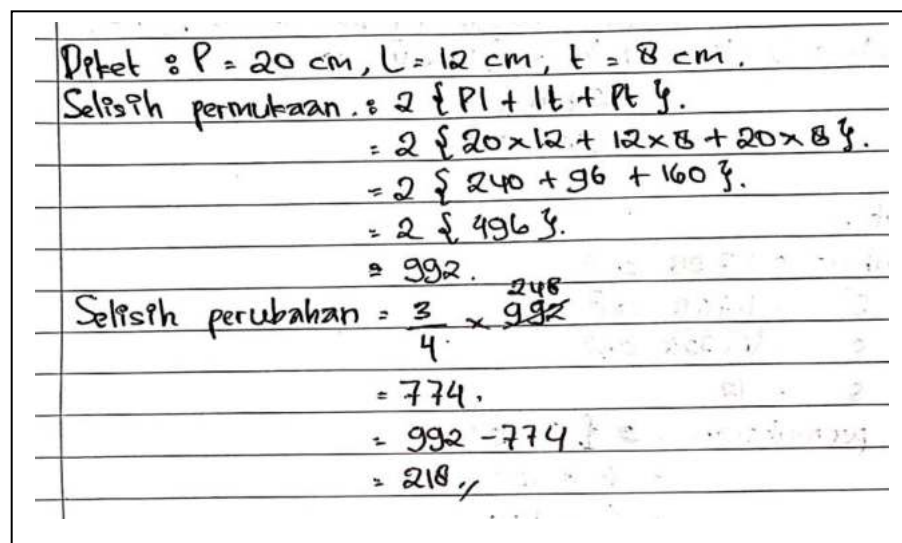 Diket : P = 20 cm, L = 12 cm, t = 8 cm.
Selisih permukaan : 2 { Pl + lt + Pt }.
= 2 { 20 x 12 + 12 x 8 + 20 x 8 }.
= 2 { 240 + 96 + 160 }.
= 2 { 496 }.
= 992.
Selisih perubahan = 3/4 x 992 248
= 774.
= 992 - 774.
= 218 //